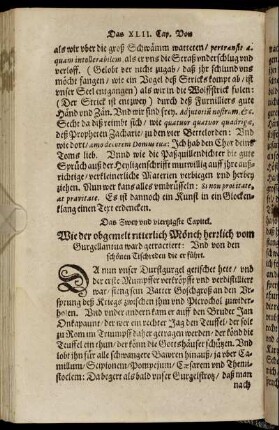 Das XLII. Cap. Von
als wir vber die groß Schwämm watteten / pertransit a.
quam intollerabilem, als er vns die Straß vnderschlug vnd
verloff. ( Gelobt der nicht zugab / daß jhr schlund vns
möcht fangen / wie ein Vogel deß Stricks kompt ab / ist
vnser Seel entgangen ) als wir in die Wolffstrick fielen:
( Der Strick ist entzwey ) durch deß Furnilliers gute
Händ vnd Zän. Vnd wir sind frey, adjutorium nostrum &c.
Secht da diß reimbt sich / wie quatuor quatuor quadrigæ,
deß Propheten Zachariæ, zu den vier Bettelorden: Vnd
wie dort / amo decorem Domus tuæ: Ich hab den Chor deins
Toms lieb. Vnnd wie die Paßquillendichter die gute
Sprüch auß der Heyligenschrifft mutwillig auff jhre auß-
richtige / verkleinerliche Materien verbiegen vnd herbey
ziehen. Nun wer kans alles vmbrüsseln: Si non proritate,
at pravitate. Es ist dannoch ein Kunst in ein Glocken-
klang einen Text erdencken.
Das Zwey vnd viertzigste Capitel.
Wie der obgemelt ritterlich Mönch herrlich vom
Gurgellantua ward getractiert: Vnd von den
schönen Tischreden die er führt.
DA nun vnser Durstgurgel gerischt hett / vnd
der erste Mumpffer vertröpfft vnd verdistilliert
war / fieng sein Vatter Goschgroß an den Vr-
sprung deß Kriegs zwischen jhm vnd Picrochol zuwider-
holen. Vnd vnder andern kam er auff den Bruder Jan
Onkapaunt / der wer ein rechter Jag den Teuffel / der solt
zu Rom im Triumpff daher getragen werden / der könd die
Teuffel ein thun / der könn die Gottshäuser schützen. Vnd
lobt jhn für alle schwangere Bawren hinauß / ja vber Ca-
millum / Scipionem / Pompejum / Cæsarem vnd Themi-
stoclem: Da begert als bald vnser Gurgelstrotz / daß man
nach